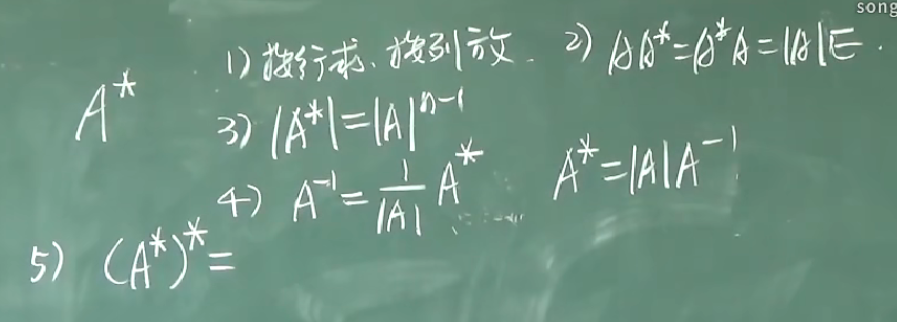 song
1) 按行求、按列放. 2) AA*=A*A=|A|E.
A*
3) |A*|=|A|ⁿ⁻¹
4) A⁻¹=1/|A| A* A*=|A|A⁻¹
5) (A*)*=